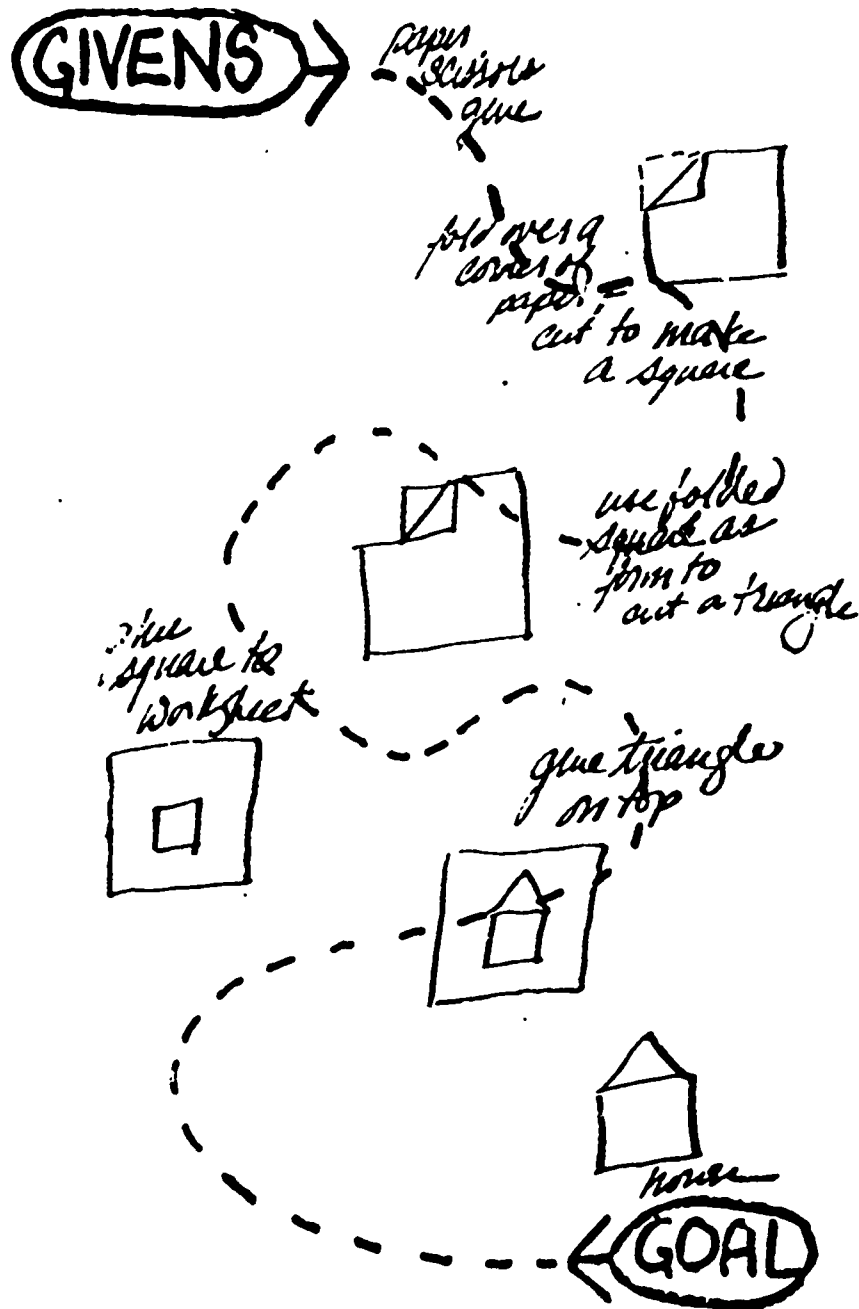 GIVENS
paper
scissors
glue
fold over a
corner of
paper
cut to make
a square
use folded
square as
form to
cut a triangle
glue
square to
worksheet
glue triangle
on top
house
GOAL